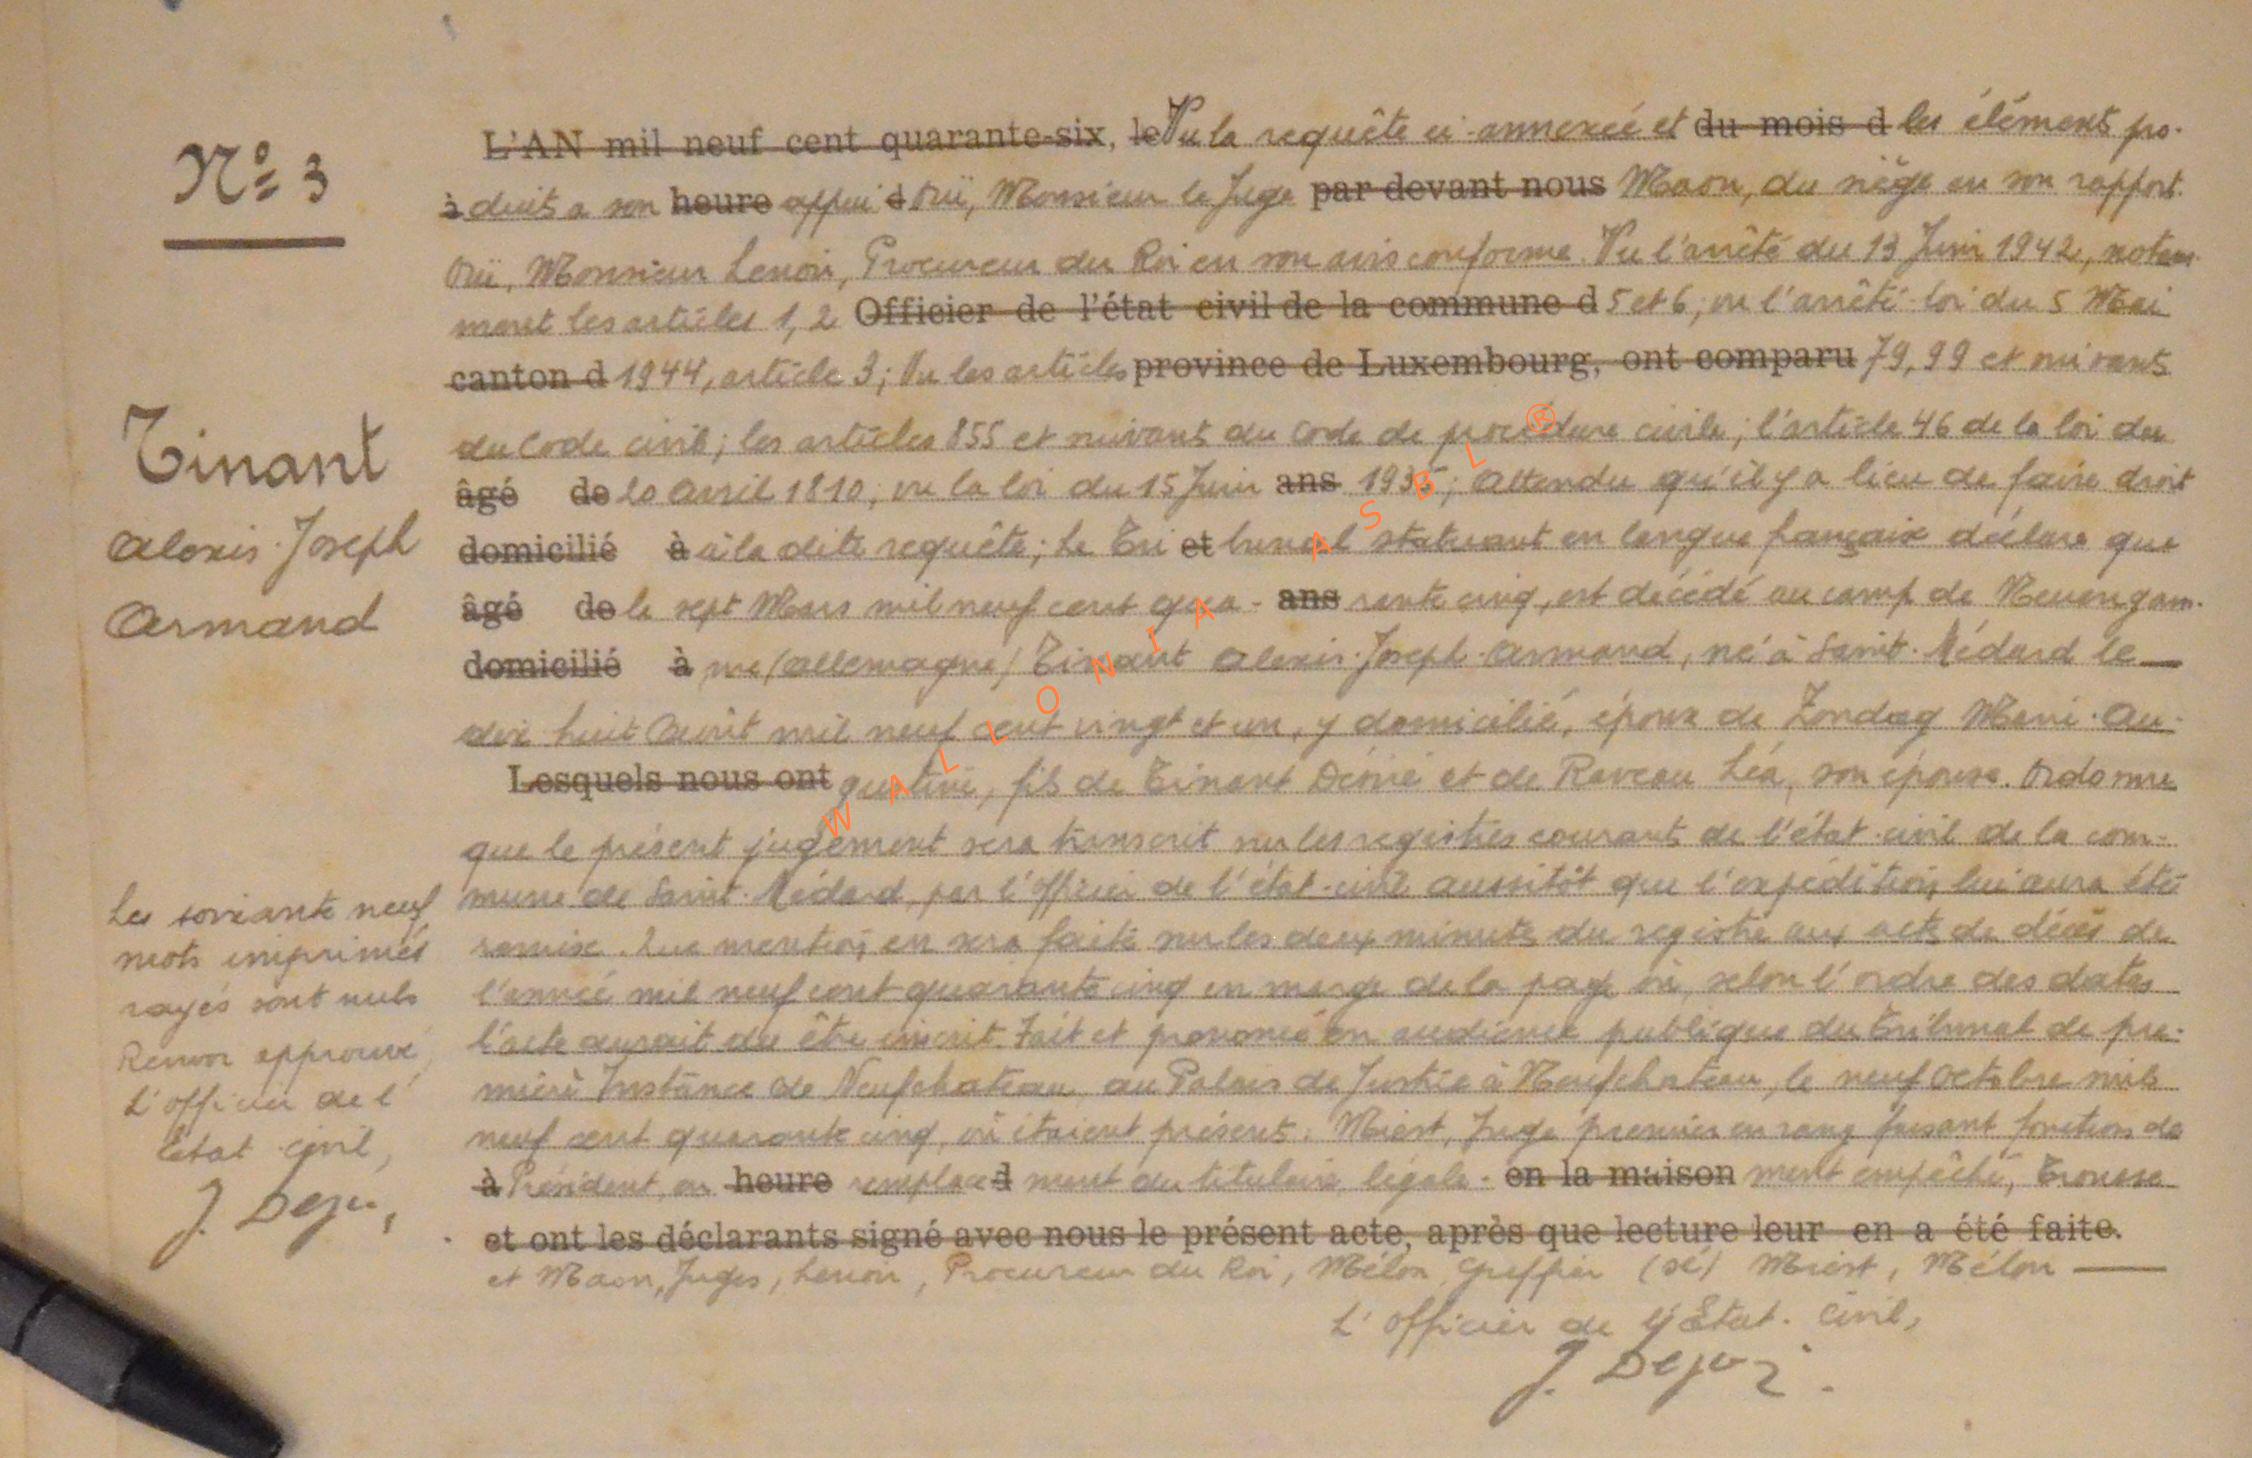 N° 3
Tinant
Alexis-Joseph
Armand
Les soixante neuf
mots imprimés
rayés sont nuls
Renvoi approuvé,
L'officier de l'
Etat civil,
J. Dejer,
L'AN mil neuf cent quarante-six, le Vu la requête ci-annexée et du mois d les éléments pro-
à duits a son heure appui d Ouï, Monsieur le Juge par devant nous Maon, du siège en son rapport.
Ouï, Monsieur Lenoir, Procureur du Roi en son avis conforme. Vu l'arrêté du 13 Juin 1942, notam-
ment les articles 1, 2 Officier de l'état civil de la commune d 5 et 6; vu l'arrêté-loi du 5 Mai
canton d 1944, article 3; Vu les articles province de Luxembourg, ont comparu 79, 99 et suivants
du Code civil; les articles 855 et suivants du Code de procédure civile; l'article 46 de la loi du
âgé de 20 Avril 1810; vu la loi du 15 Juin ans 1935; Attendu qu'il y a lieu de faire droit
domicilié à à la dite requête; Le Tri et bunal statuant en langue française déclare que
âgé de le sept Mars mil neuf cent qua- ans rante cinq, est décédé au camp de Neuengam-
domicilié à me (Allemagne) Tinant Alexis-Joseph-Armand, né à Saint-Médard le
dix-huit Août mil neuf cent vingt et un, y domicilié, époux de Zondag Marie-Au-
Lesquels nous ont gustine, fils de Tinant Désiré et de Raveau Léa, son épouse. Ordonne
que le présent jugement sera transcrit sur les registres courants de l'état-civil de la com-
mune de Saint-Médard, par l'officier de l'état-civil aussitôt que l'expédition lui aura été
remise. Que mention en sera faite sur les deux minutes du registre aux actes de décès de
l'année mil neuf cent quarante cinq en marge de la page où, selon l'ordre des dates
l'acte aurait du être inscrit. Fait et prononcé en audience publique du Tribunal de pre-
mière Instance de Neufchateau, au Palais de Justice à Neufchateau, le neuf Octobre mil
neuf cent quarante cinq, où étaient présents: Miest, Juge premier en rang faisant fonctions de
à Président, en heure remplace d ment du titulaire légale- en la maison ment empêché, Trousse
et ont les déclarants signé avec nous le présent acte, après que lecture leur en a été faite.
et Maon, Juges, Lenoir, Procureur du Roi, Mélon, Greffier (sé) Miest, Mélon
L'officier de l'Etat-Civil,
J. Dejer.
WALLONIA ASBL®